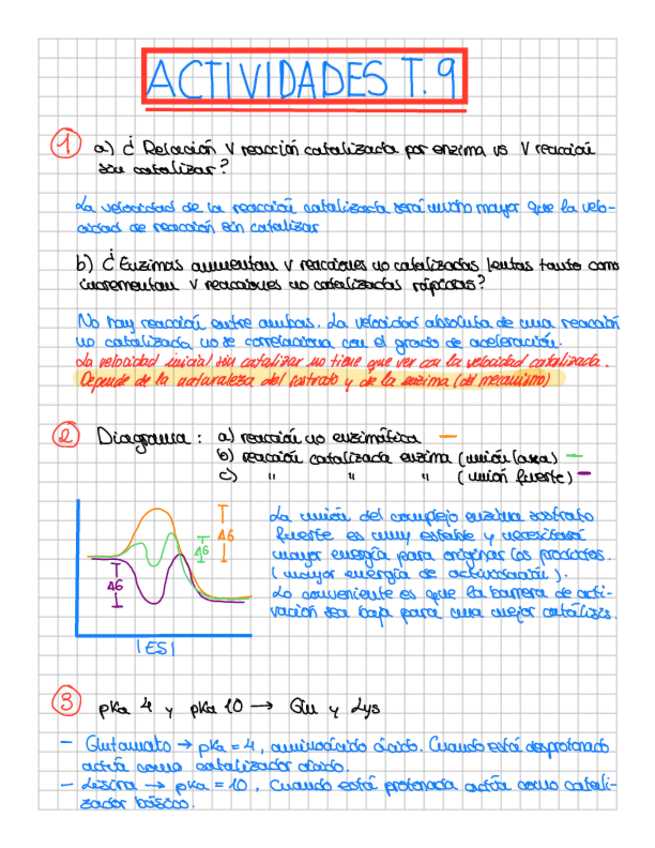 ACTIVIDADES T.9
1 a) ¿ Relación V reacción catalizada por enzima vs V reacción
sin catalizar?
La velocidad de la reacción catalizada será mucho mayor que la velo-
cidad de reacción sin catalizar
b) ¿Enzimas aumentan V reacciones no catalizadas lentas tanto como
incrementan V reacciones no catalizadas rápidas?
No hay reacción entre ambas. La velocidad absoluta de una reacción
no catalizada no se correlaciona con el grado de aceleración.
La velocidad inicial sin catalizar no tiene que ver con la velocidad catalizada.
Depende de la naturaleza del sustrato y de la enzima (del mecanismo)
2 Diagrama : a) reacción no enzimática
b) reacción catalizada enzima (unión laxa)
c) " " " (unión fuerte)
ΔG
ΔG
ΔG
|ES|
La unión del complejo enzima sustrato
fuerte es muy estable y necesitará
mayor energía para originar los productos.
(mayor energía de activación).
Lo conveniente es que la barrera de acti-
vación sea baja para una mejor catálisis.
3 pKa 4 y pKa 10 → Glu y Lys
- Glutamato → pKa = 4, aminoácido ácido. Cuando está desprotonado
actúa como catalizador ácido.
- Lisina → pKa = 10, Cuando está protonada actúa como catali-
zador básico.